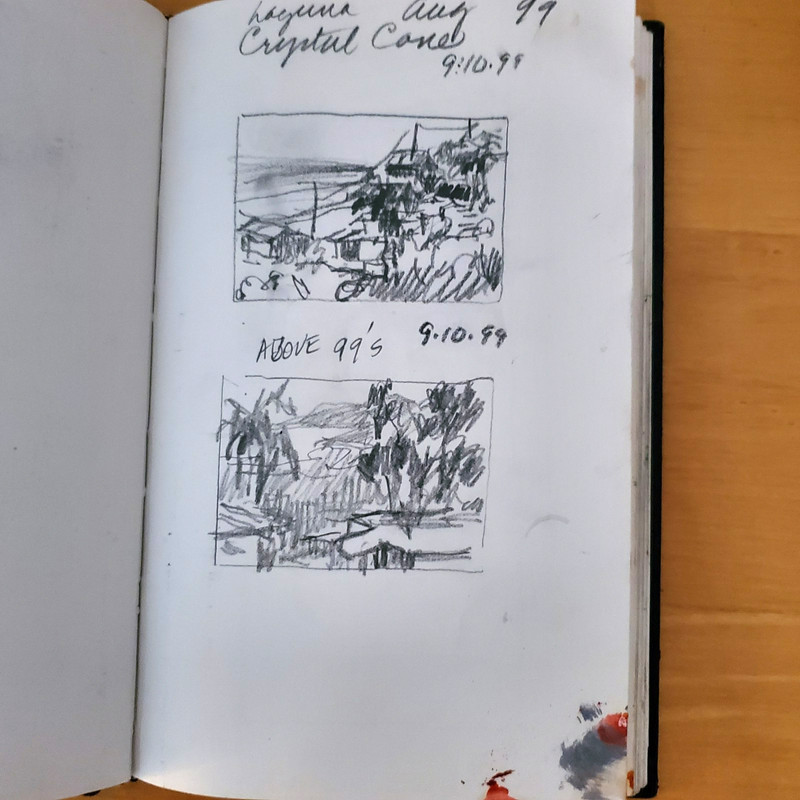 Laguna Aug 99
Crystal Cove
9.10.99
ABOVE 99's 9.10.99